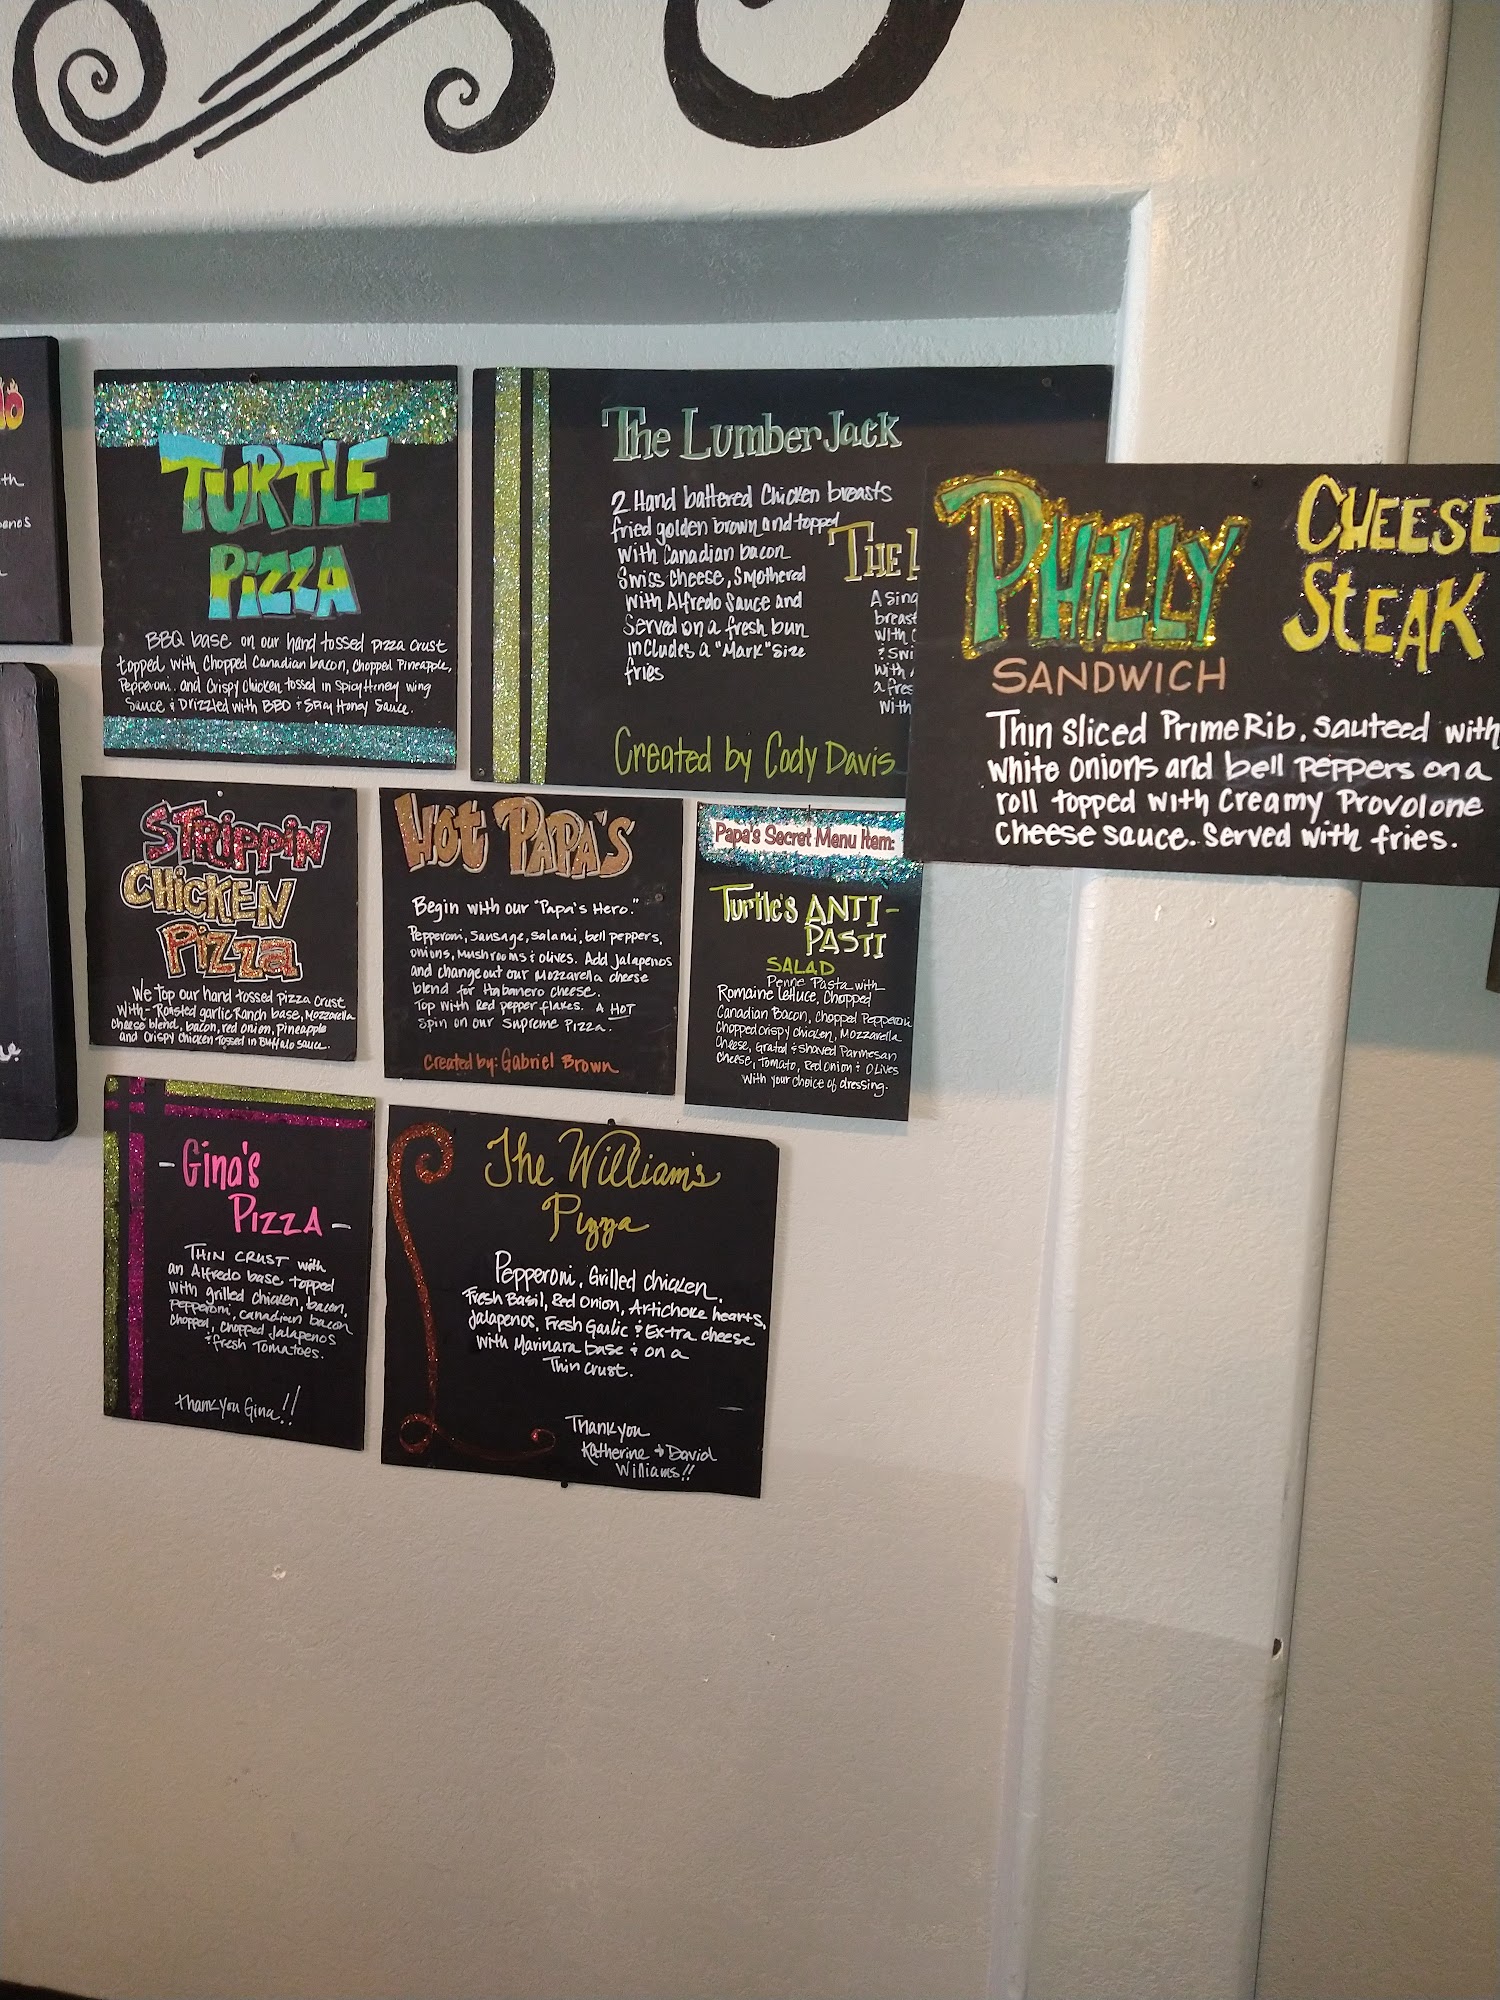 TURTLE
PIZZA
BBQ base on our hand tossed pizza crust
topped with Chopped Canadian bacon, Chopped Pineapple,
Pepperoni. and Crispy Chicken tossed in Spicy Honey wing
Sauce & Drizzled with BBQ & Spicy Honey Sauce.
The LumberJack
2 Hand battered Chicken breasts
fried golden brown and topped
with Canadian bacon
Swiss cheese, Smothered
with Alfredo Sauce and
Served on a fresh bun
includes a "Mark" Size
fries
Created by Cody Davis
THE
A sing
breast
with
& Swi
with
a fres
with
PHILLY
CHEESE
STEAK
SANDWICH
Thin sliced Prime Rib, sauteed with
white onions and bell peppers on a
roll topped with Creamy Provolone
Cheese sauce. Served with fries.
STRIPPIN
CHICKEN
PIZZA
We Top our hand tossed pizza crust
with- Roasted garlic Ranch base, Mozzarella
cheese blend, bacon, red onion, pineapple
and Crispy Chicken Tossed in Buffalo sauce.
HOT PAPA'S
Begin with our "Papa's Hero."
Pepperoni, Sausage, Salami, bell peppers,
onions, Mushrooms & olives. Add Jalapenos
and change out our Mozzarella cheese
blend for Habanero cheese.
Top with Red pepper flakes. A HOT
Spin on our Supreme Pizza.
Created by: Gabriel Brown
Papa's Secret Menu Item:
Turtle's ANTI-
PASTI
SALAD
Penne Pasta with
Romaine Lettuce, Chopped
Canadian Bacon, Chopped Pepperoni
Chopped crispy chicken, Mozzarella
Cheese, Grated & Shaved Parmesan
cheese, Tomato, Red Onion & Olives
with your choice of dressing.
- Gina's
PIZZA -
THIN CRUST with
an Alfredo base topped
with grilled chicken, bacon,
Pepperoni, Canadian bacon
Chopped, Chopped Jalapenos
& fresh Tomatoes.
Thank you Gina!!
The William's
Pizza
Pepperoni, Grilled chicken,
Fresh Basil, Red Onion, Artichoke hearts,
Jalapenos, Fresh Garlic & Extra cheese
with Marinara base & on a
Thin Crust.
Thank you
Katherine & David
Williams!!